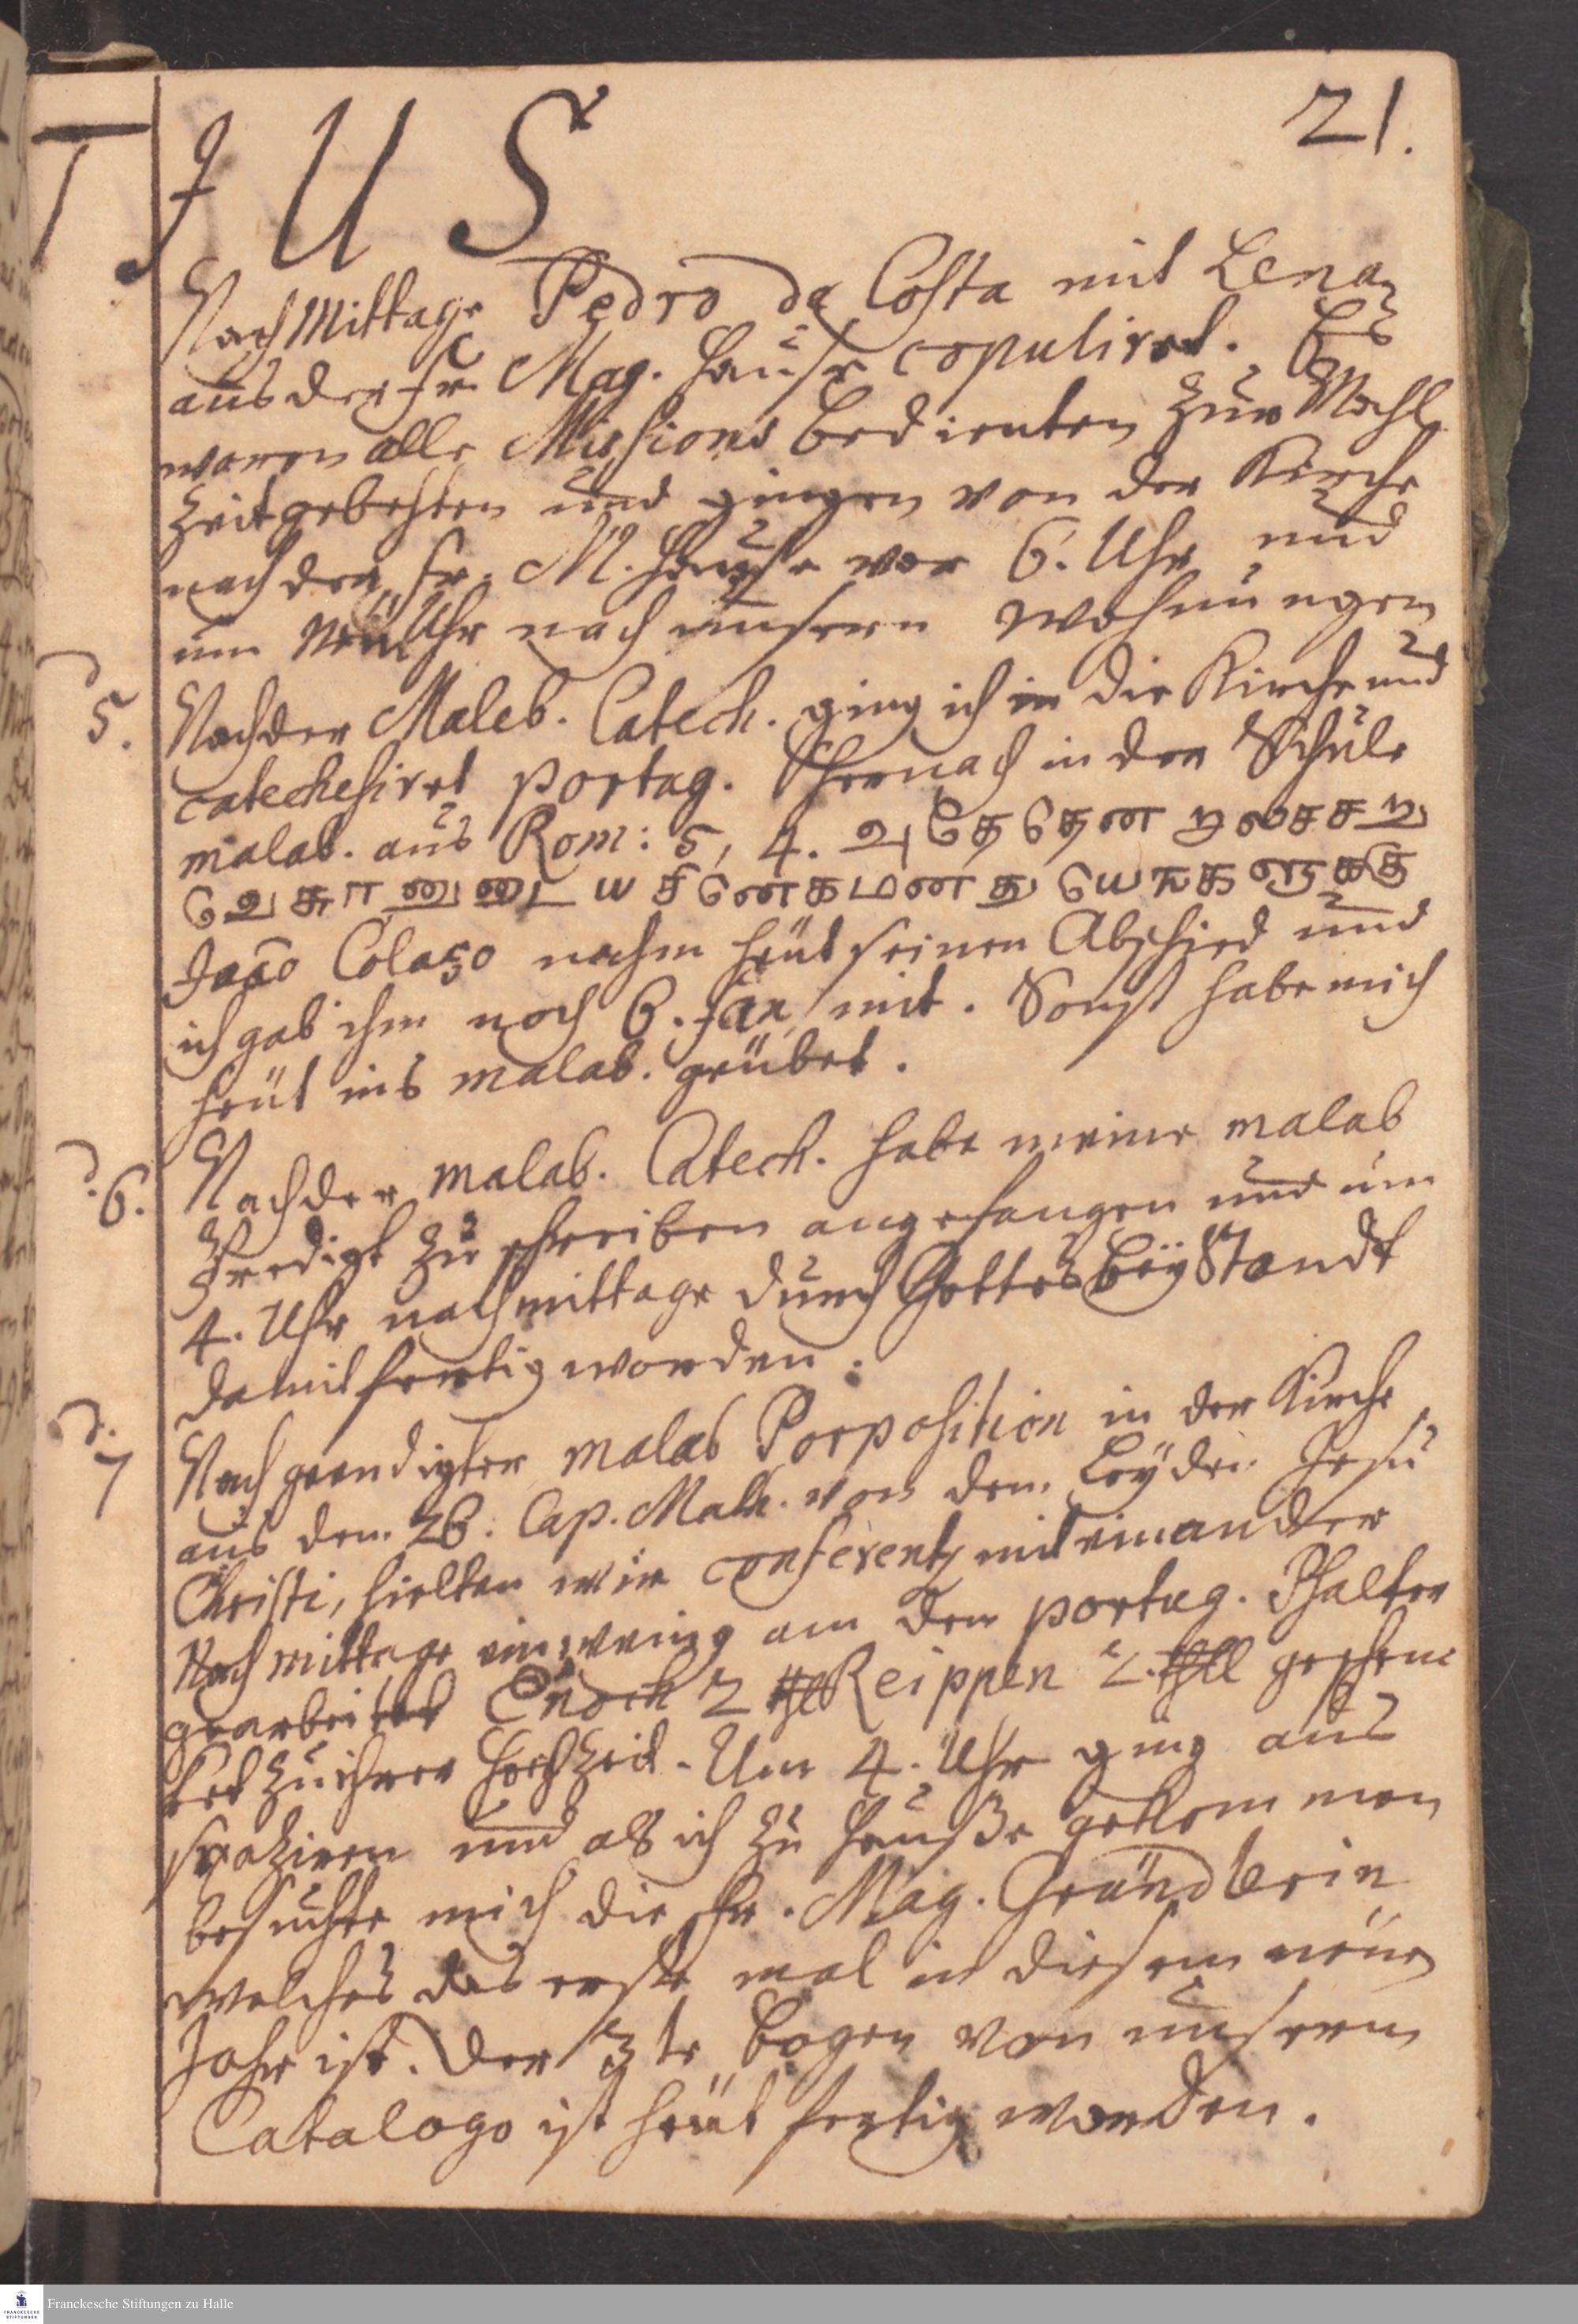 21.
J U S
Nach Mittage Pedro da Costa mit Lena
aus der Fr. Mag. Hause copuliret. Es
waren alle Missions Bedienten zur Mahl
Zeit gebehten und gingen von der Kirche
nach der Fr. M. Hause vor 6. Uhr und
um Neun Uhr nach unsern Wohnungen
d. 5. Nach der Maleb. Catech. ging ich in die Kirche und
catechesiret portug. Hernach in der Schule
malab. aus Rom: 5, 4.
Joaõ Colaço nahm heüt seinen Abschied und
ich gab ihm noch 6. fan mit. Sonst habe mich
heüt ins malab. geübet.
d. 6. Nach der malab. Catech. habe meine malab
Predigt zu schreiben angefangen und um
4. Uhr nachmittage durch Gottes Beystandt
damit fertig worden.
d. 7 Nach geendigter malab Porposition in der Kirche
aus dem 26. Cap. Math. von dem Leyden Jesu
Christi, hielten wir conferentz mit einander
Nach mittage ein wenig an dem portug. Psalter
gearbeitet Enoch 2 Reippen 2. geschenc
ket zu ihrer Hochzeit. Um 4. Uhr ging aus
spaziren und als ich zu Hauße gekommen
besuchte mich die Fr. Mag. Gründlerin
welches das erste mal in diesem neüen
Jahr ist. Der 3te Bogen von unserm
Catalogo ist heüt fertig worden.
Franckesche Stiftungen zu Halle